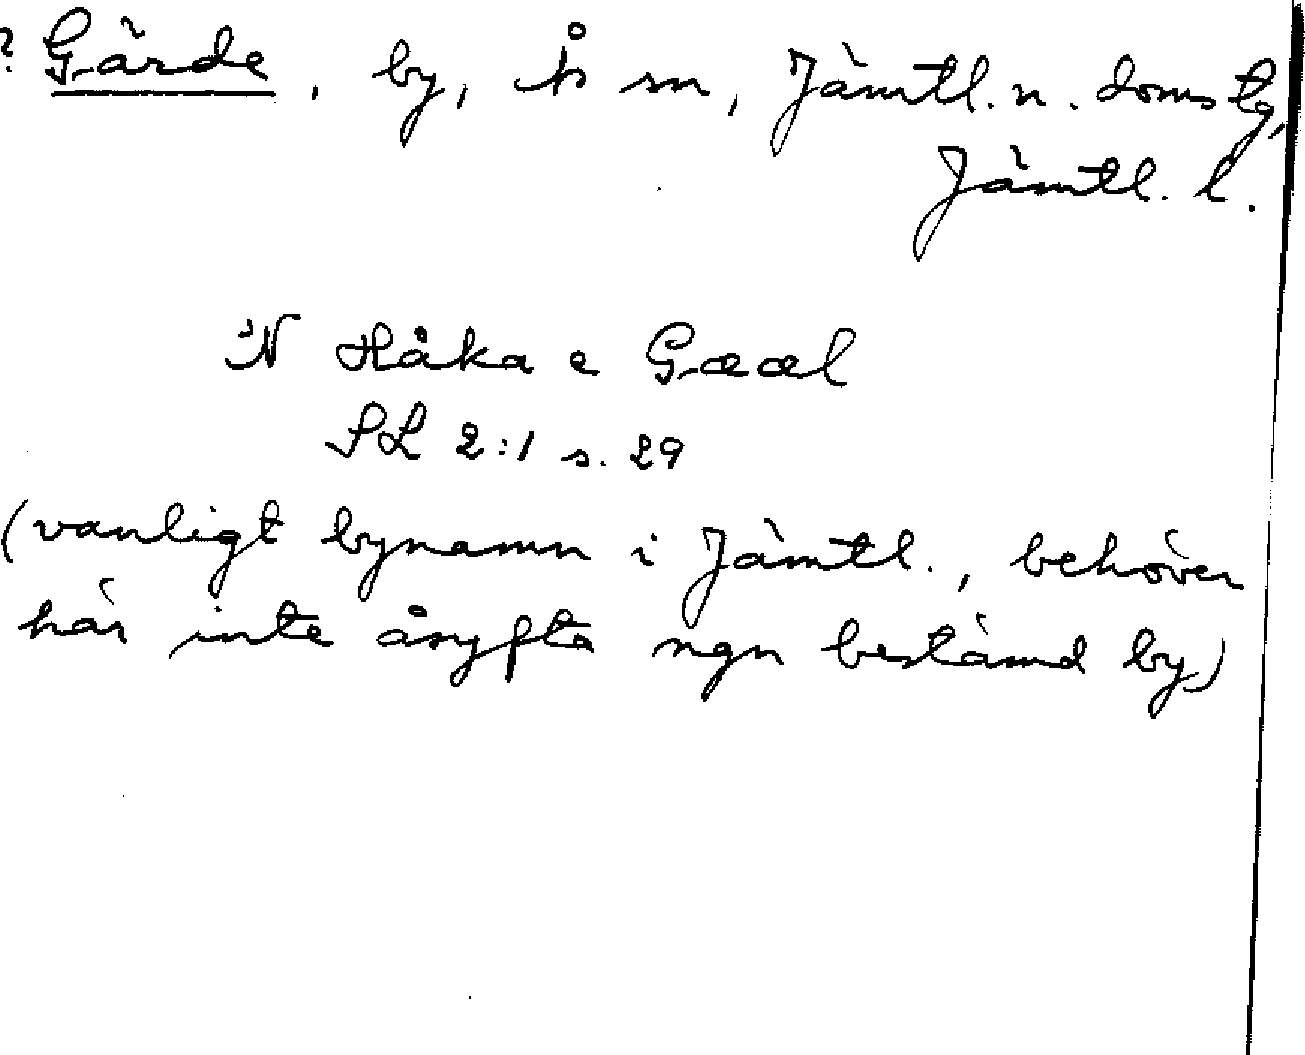 ? Gärde, by, Ås sn, Jämtl. n. doms tg,
Jämtl. l.
N Håka e Gææl
SL 2:1 s. 29
(vanligt bynamn i Jämtl., behöver
här inte åsyfta ngn bestämd by)